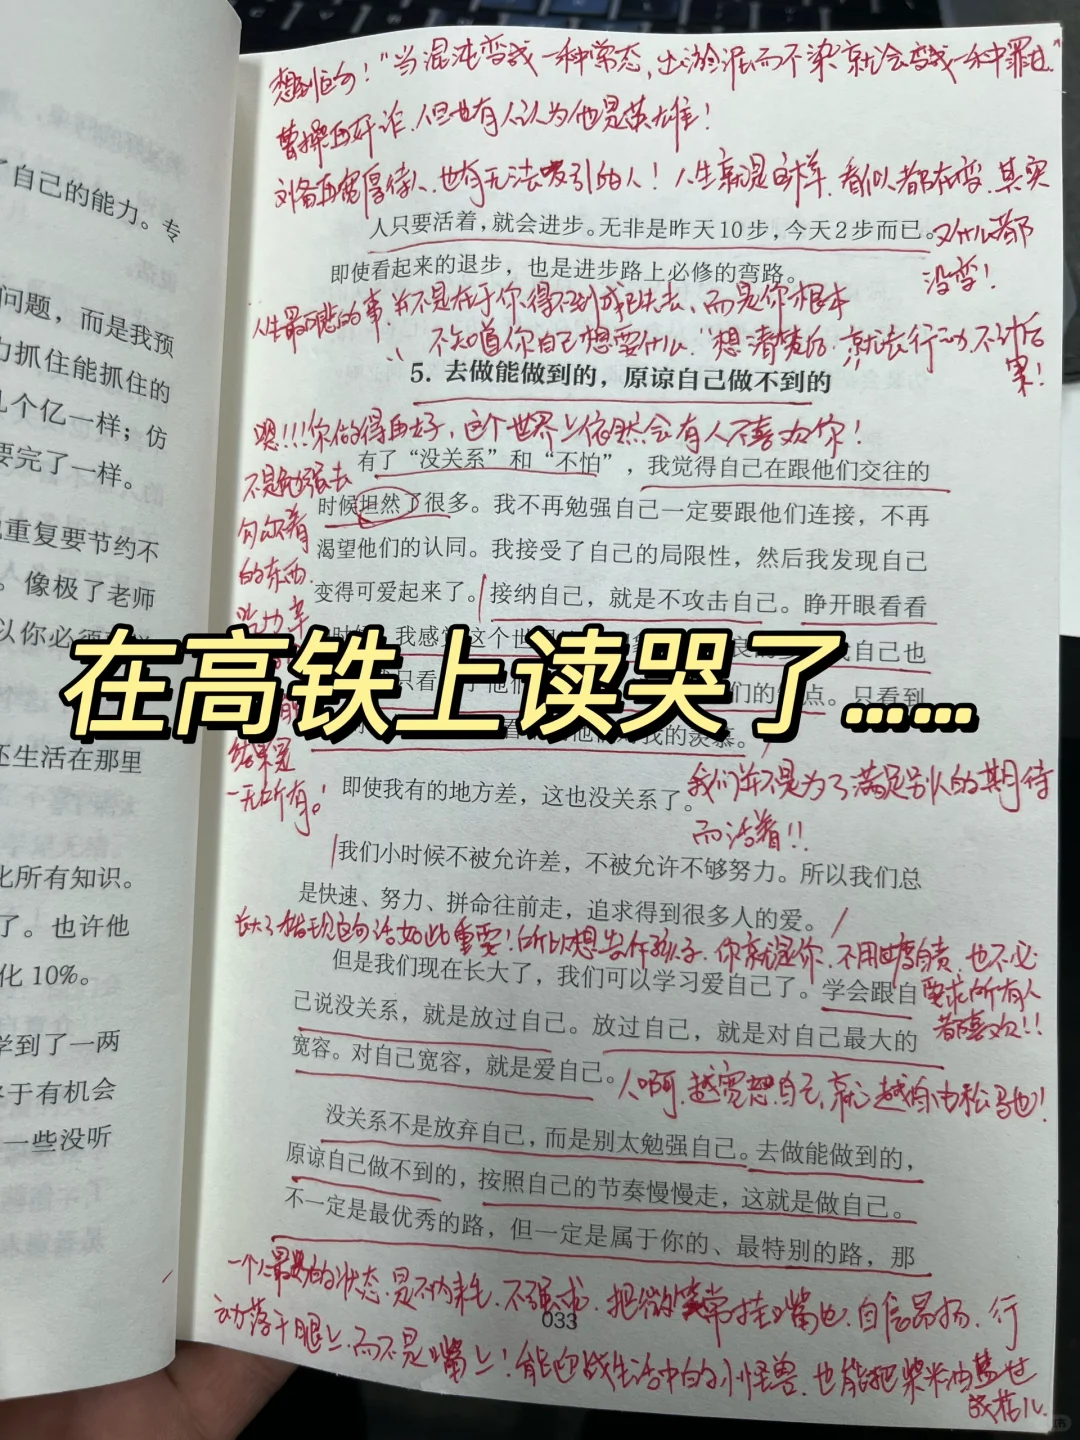 想到一句！“当混沌变成一种常态，出淤泥而不染就会变成一种罪过.”
曹操再奸诈、但也有人认为他是英雄！
刘备再宽厚待人、也有无法吸引的人！人生就是这样、看似人都在变、其实
又什么都
没变！
人只要活着，就会进步。无非是昨天10步，今天2步而已。
即使看起来的退步，也是进步路上必修的弯路。
人生最可悲的事、并不是在于你得不到或失去、而是你根本
不知道你自己想要什么、“想清楚后、就去行动、不计后
果！
5. 去做能做到的，原谅自己做不到的
嗯!!!你做得再好、这个世界上依然会有人不喜欢你！
有了“没关系”和“不怕”，我觉得自己在跟他们交往的
时候坦然了很多。我不再勉强自己一定要跟他们连接，不再
渴望他们的认同。我接受了自己的局限性，然后我发现自己
变得可爱起来了。接纳自己，就是不攻击自己。睁开眼看看
我感觉这个世
我自己也
只看
们的
点。只看到
看
我的羡慕。
不是勉强去
勾勾着
的东西.
吃力
结果是
一无所有！
在高铁上读哭了……
即使我有的地方差，这也没关系了。
我们并不是为了满足别人的期待
而活着!!
我们小时候不被允许差，不被允许不够努力。所以我们总
是快速、努力、拼命往前走，追求得到很多人的爱。
长大了才发现这句话如此重要！所以想告诉孩子、你就是你、不用过度自责、也不必
要求所有人
都喜欢!!
但是我们现在长大了，我们可以学习爱自己了。学会跟自
己说没关系，就是放过自己。放过自己，就是对自己最大的
宽容。对自己宽容，就是爱自己。
人啊、越宽恕自己、就越自由松弛！
没关系不是放弃自己，而是别太勉强自己。去做能做到的，
原谅自己做不到的，按照自己的节奏慢慢走，这就是做自己。
不一定是最优秀的路，但一定是属于你的、最特别的路，那
一个人最好的状态、是不内耗、不强求、把微笑常挂嘴边、自信昂扬、行
动落于腿上、而不是嘴上！能迎战生活中的小怪兽、也能把柴米油盐过
成
033
了自己的能力。专
问题，而是我预
力抓住能抓住的
几个亿一样；仿
要完了一样。
重复要节约不
。像极了老师
以你必须
还生活在那里
化所有知识。
了。也许他
化 10%。
学到了一两
终于有机会
一些没听